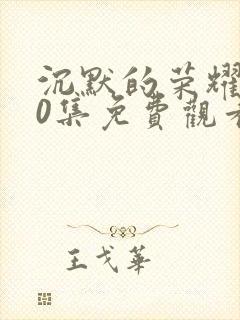 沉默的荣耀
0集免費觀看
王戈華